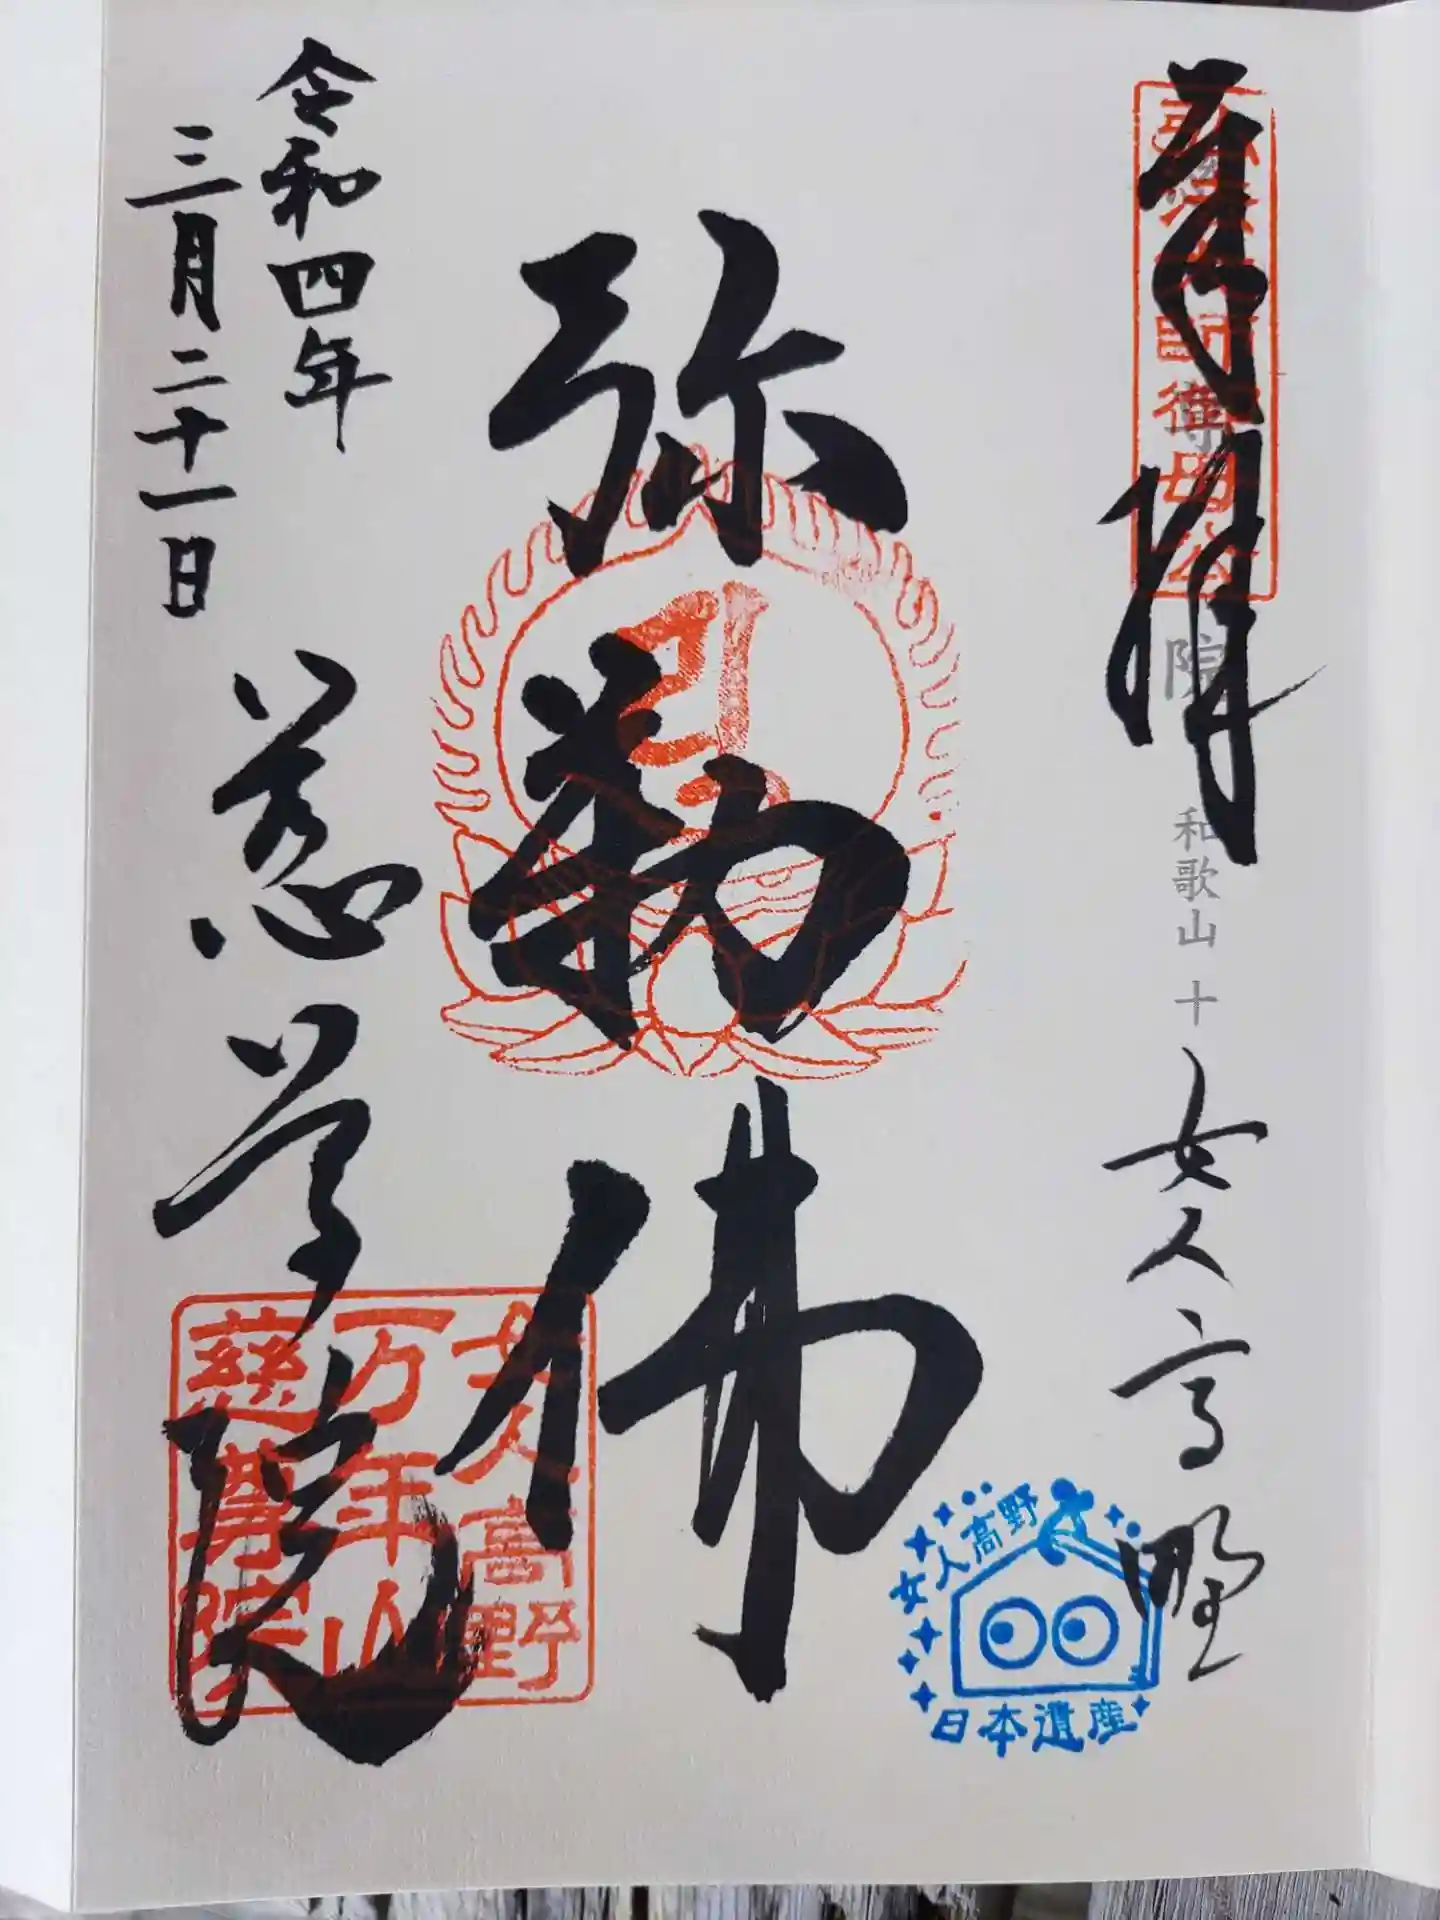 奉拝
弘法大師御母公
慈尊院
和歌山十
女人高野
弥勒佛
令和四年
三月二十一日
慈尊院
女人高野
万年山
慈尊院
女人高野
日本遺産